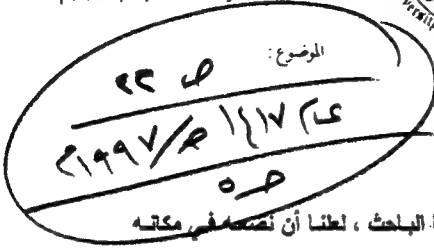 الموضوع:
ص ٢٢
عام ١٤١٧ هـ/١٩٩٧م
ص ٥
الباحث ، لعلنا أن نضعه في مكانه